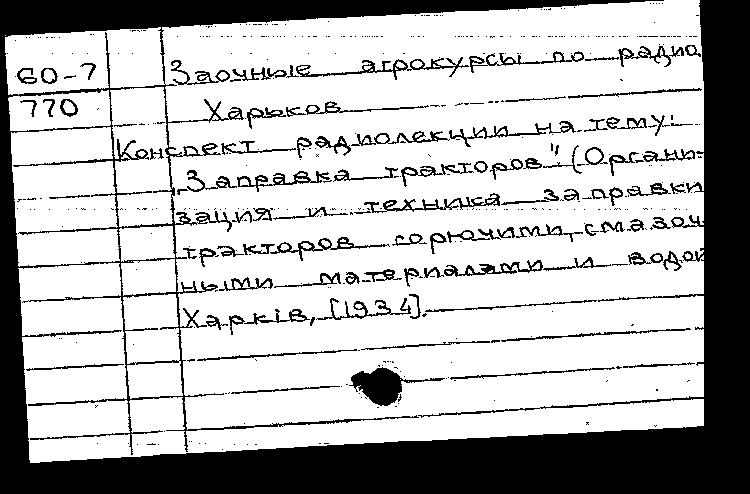 60-7
770
Заочные агрокурсы по радио.
Харьков
Конспект радиолекции на тему:
„Заправка тракторов" (Органи-
зация и техника заправки
тракторов горючими, смазоч-
ными материалами и водой
Харкiв, [1934].